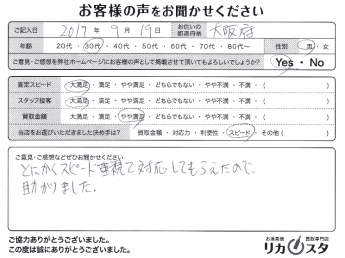 お客様の声をお聞かせください
ご記入日 2017年 9月 19日 お住いの都道府県 大阪府
年齢 20代・30代・40代・50代・60代・70代・80代〜 性別 男・女
ご意見・ご感想を弊社ホームページにお客様の声として掲載させて頂いてもよろしいでしょうか? Yes・No
査定スピード 大満足・満足・やや満足・どちらでもない・やや不満・不満・( )
スタッフ接客 大満足・満足・やや満足・どちらでもない・やや不満・不満・( )
買取金額 大満足・満足・やや満足・どちらでもない・やや不満・不満・( )
当店をお選びいただきました決め手は? 買取金額・対応力・利便性・スピード・その他( )
ご意見・ご感想などぜひお聞かせください
とにかくスピード重視で対応してもらえたので、
助かりました。
ご協力ありがとうございました。
この度は誠にありがとうございました。
お酒買取 買取専門店
リカスタ